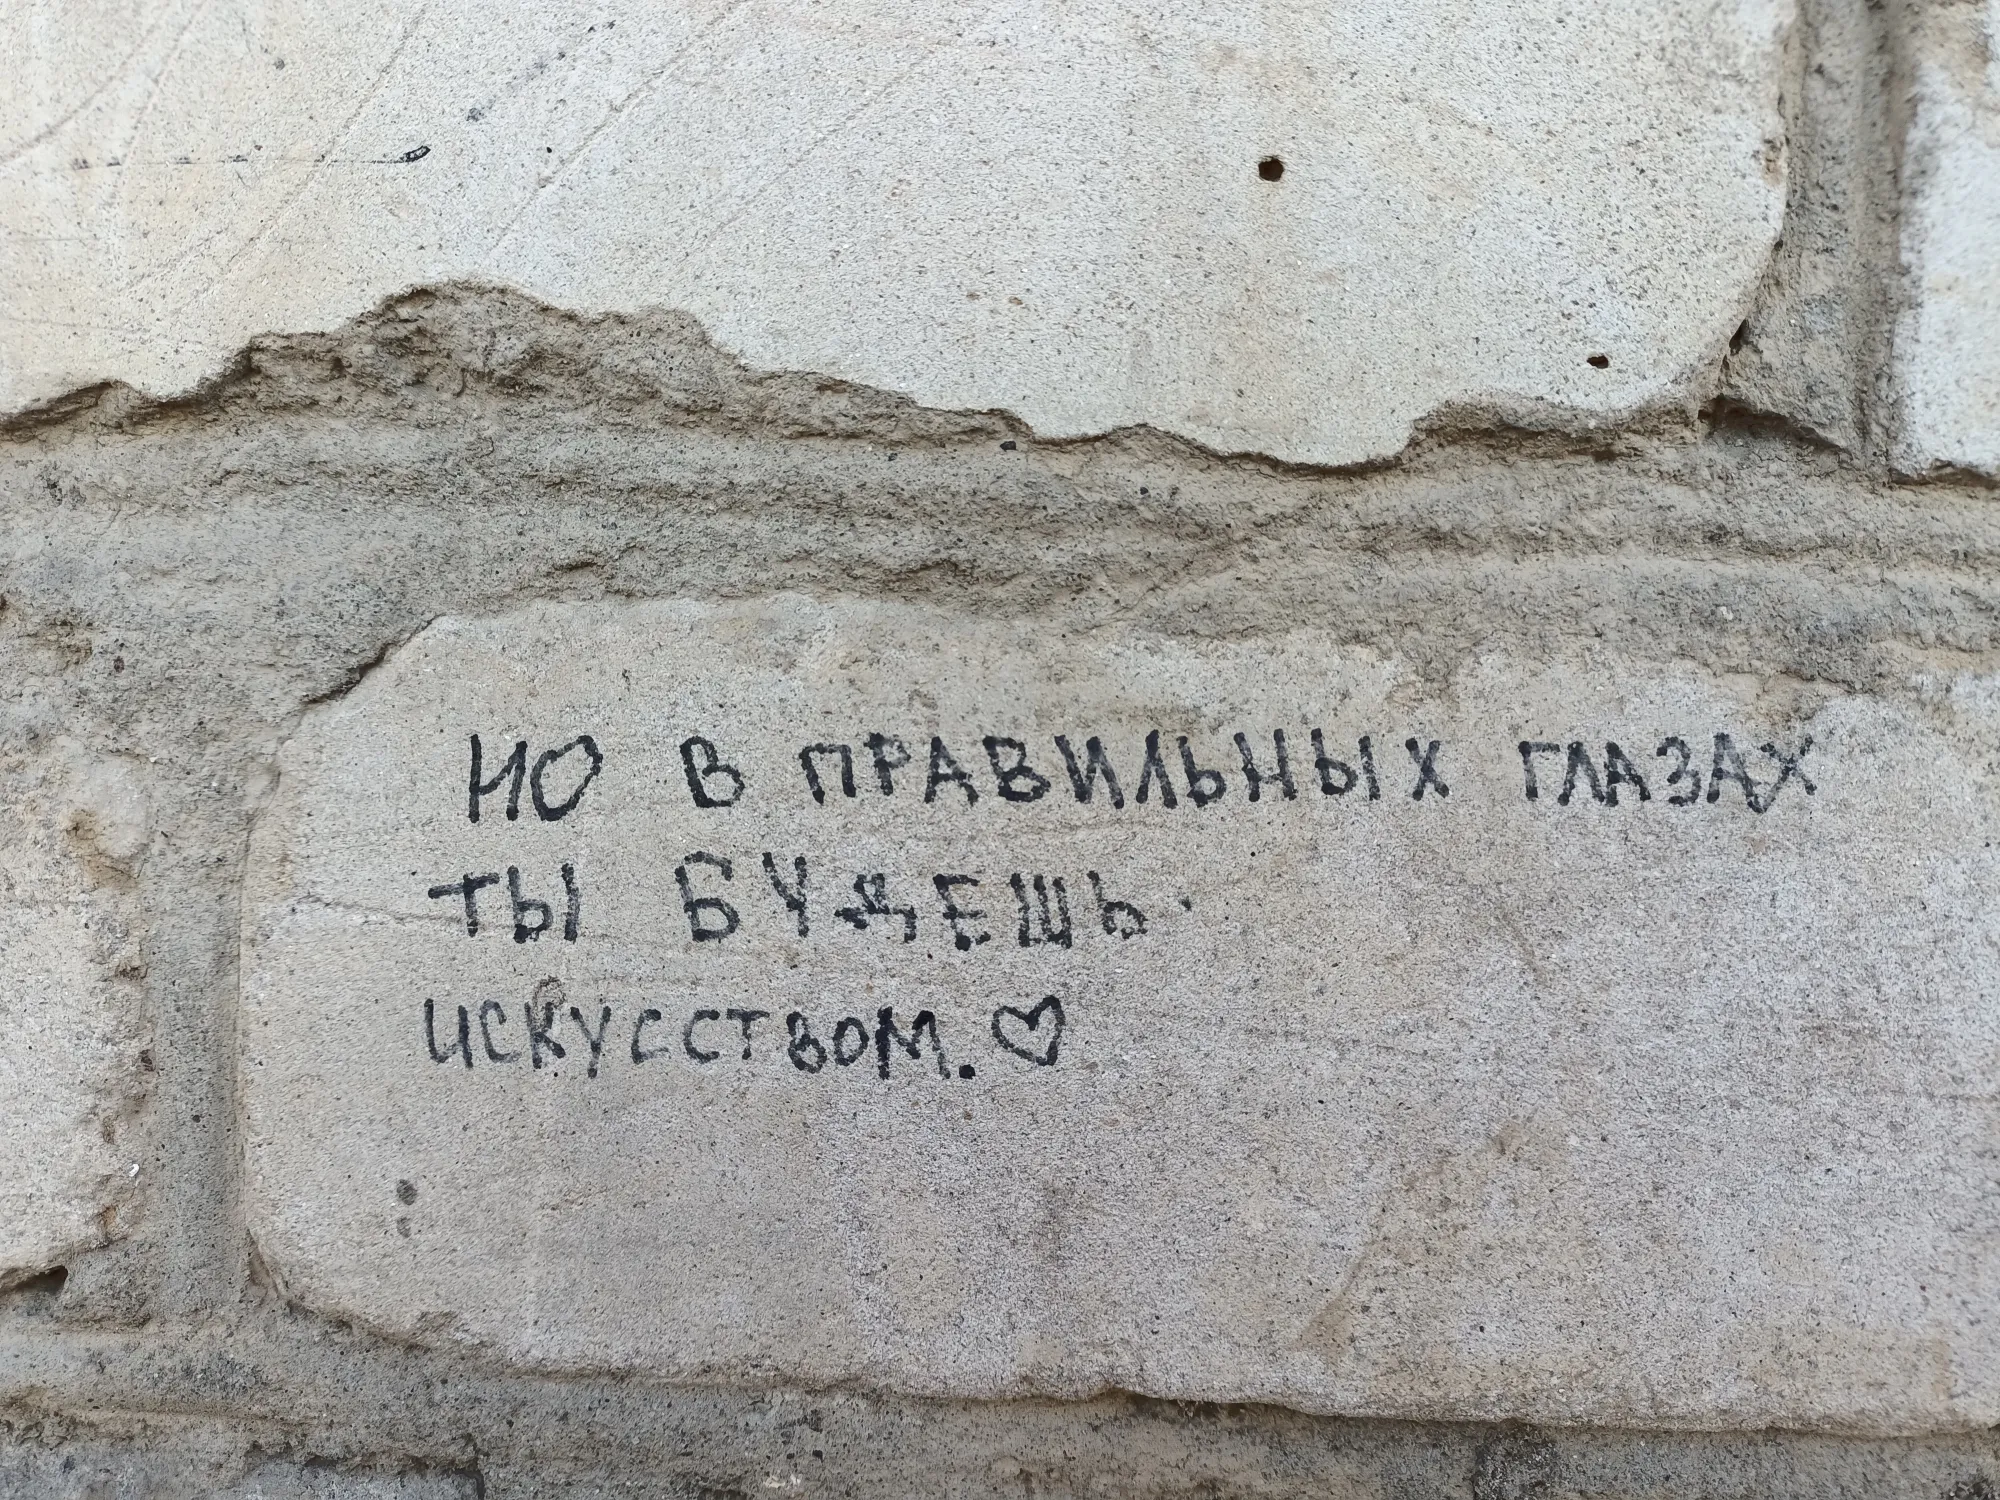 НО В ПРАВИЛЬНЫХ ГЛАЗАХ
ТЫ БУДЕШЬ
ИСКУССТВОМ.♡